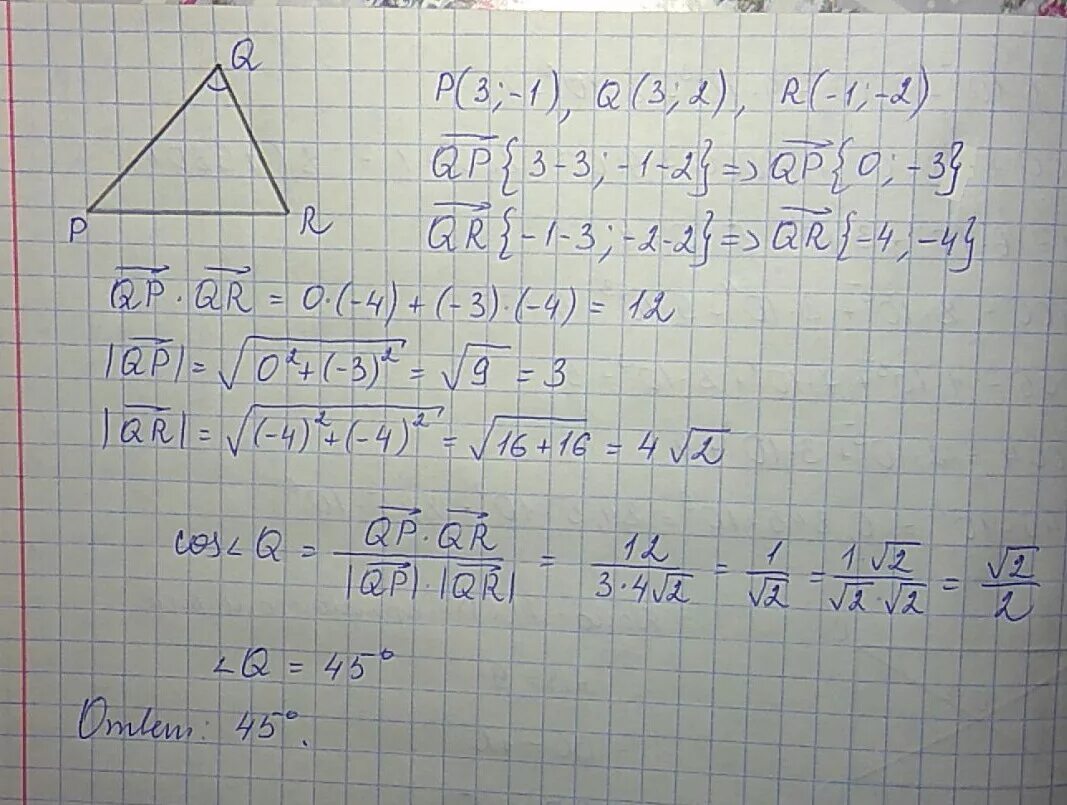 Q
P(3;-1), Q(3;2), R(-1;-2)
QP{3-3;-1-2}=>QP{0;-3}
P R
QR{-1-3;-2-2}=>QR{-4;-4}
QP·QR = 0·(-4)+(-3)·(-4) = 12
|QP| = √(0²+(-3)²) = √9 = 3
|QR| = √((-4)²+(-4)²) = √(16+16) = 4√2
cos∠Q = QP·QR / |QP|·|QR| = 12 / 3·4√2 = 1/√2 = 1√2 / √2·√2 = √2/2
∠Q = 45°
Ответ: 45°.